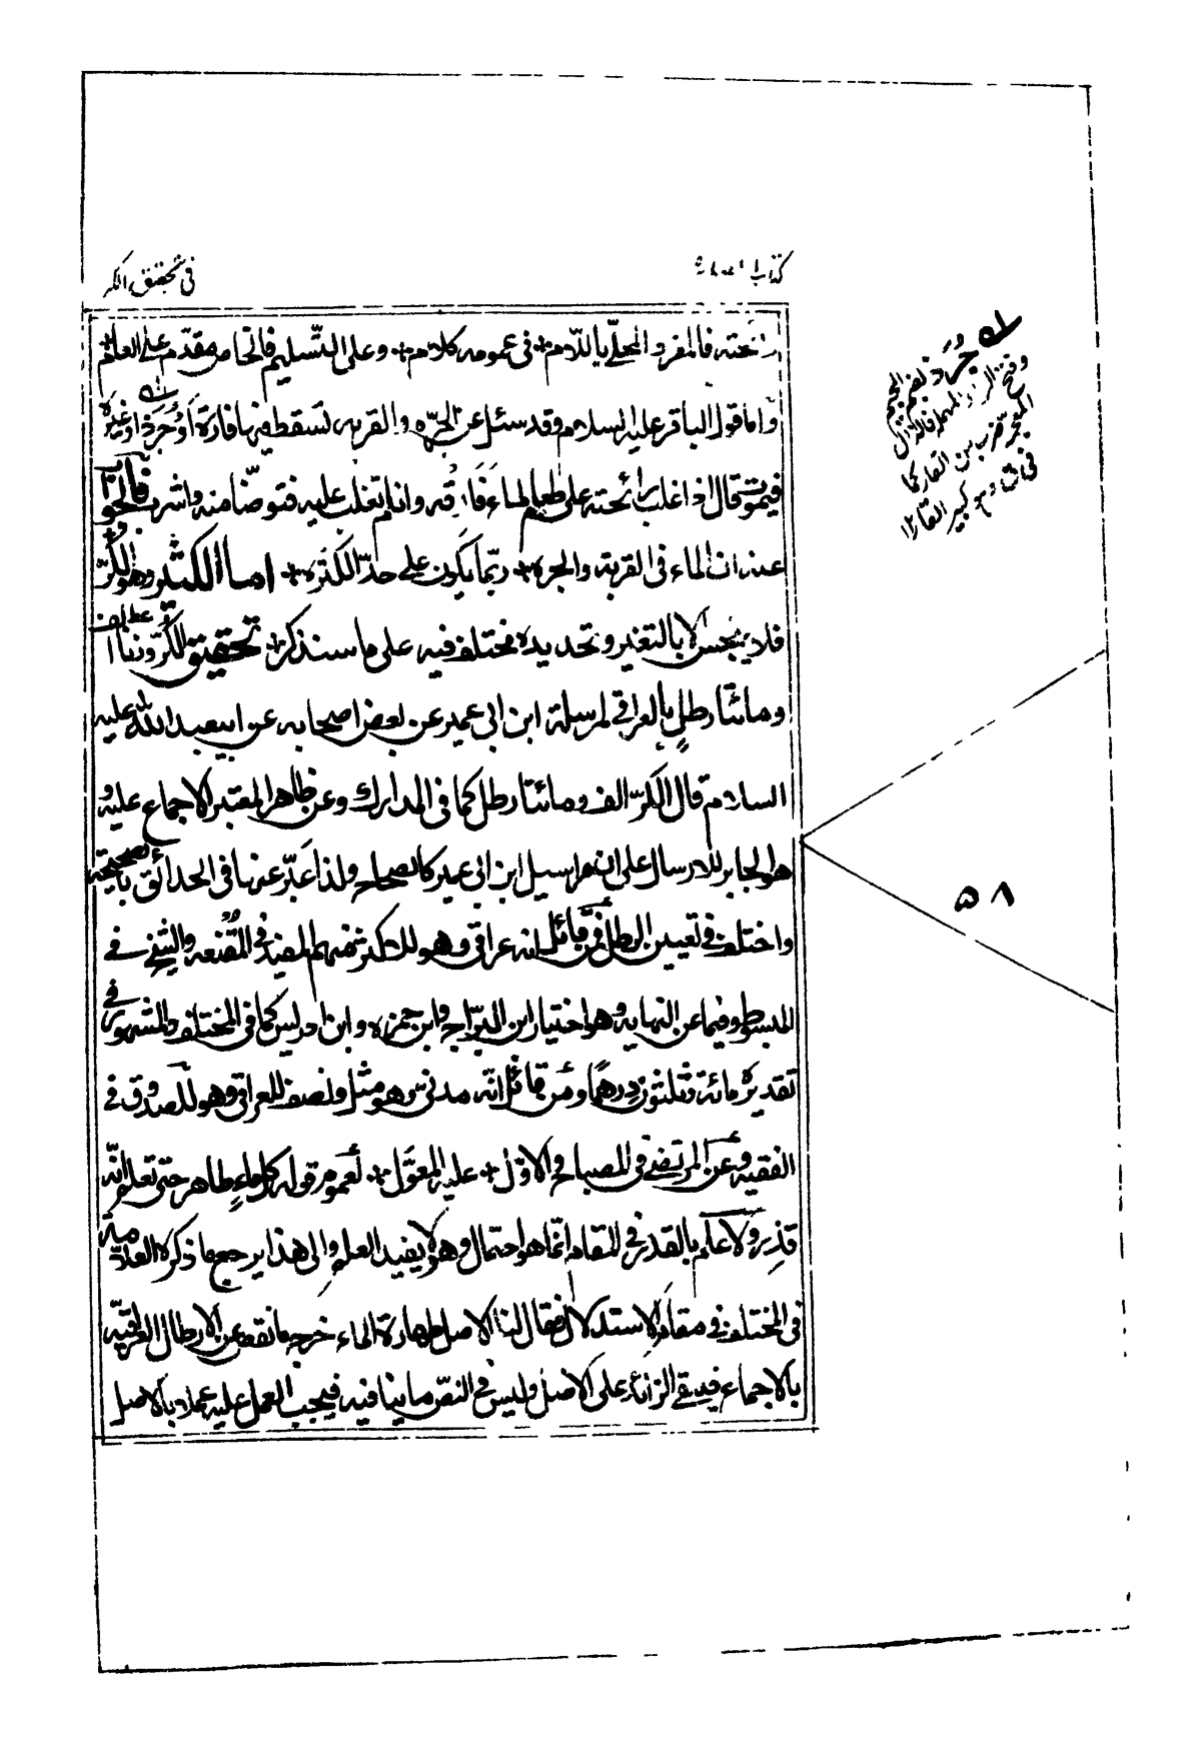 كتاب الطهارة
في تحقيق الكر
رائحته فالمفرد المحلّى باللّام في عمومه كلام وعلى التّسليم فالخاص مقدّم على العام
وامّا قول الباقر عليه السلام وقد سئل عن الجرّه والقربه تسقط فيها فارة أو جُرَذ او غيره
فيموت قال اذا غلب رائحته على طعم الماء فَارِقه وان لم تغلب عليه فتوضّا منه واشرب فالجواب
عنه ان الماء في القربة والجره ربّما يكون على حدّ الكثره امـا الكثير وهو الكُرّ
فلا ينجس الّا بالتغير وتحديده مختلف فيه على ما سنذكر تحقيق الكُرّ وزنا الف
ومائتا رطلٍ بالعراقي لمرسلة ابن ابي عمير عن بعض اصحابه عن ابيعبد الله عليه
السلام قال الكرّ الف ومائتا رطل كما في المدارك وعن ظاهر المعتبر الاجماع عليه و
هو الجابر للارسال على ان مراسيل ابن ابي عمير كالصحاح ولذا عَبّر عنها في الحدائق بالصحيحة
واختلف في تعيين الرطل فَمِن قائل انه عراقي وهو للاكثر منهم المفيد في المُقنعه والشيخ في
المبسوط وفيما عن النهايه وهو اختيار ابن البرّاج وابن حمزه وابن ادريس كما في المختلف والمشهور في
تقديره مائة وثلثون درهمًا ومَن قائل انّه مدنيّ وهو مثل ونصف للعراقي وهو للصدوق في
الفقيه وعن المرتضى في المصباح والاوّل عليه المعوّل لعموم قوله كل ماءٍ طاهر حتى تعلم انّه
قَذِر ولا علم بالقدر في المقام انّما هو احتمال وهو لا يفيد العلم والى هذا يرجع ما ذكره العلامة
في المختلف في مقام الاستدلال فقال لنا الاصل طهارة الماء خرج ما نقص عن الارطال العراقيّه
بالاجماع فيبقى الزائد على الاصل وليس في النصّ ما ينافيه فيجب العمل عليه عملا بالاصل
جُرَذ بضم الجيم
وفتح الراء المهملة فالذال
المعجمة ضرب من الفار كما
في ق وهو كبير الفار
٥٨